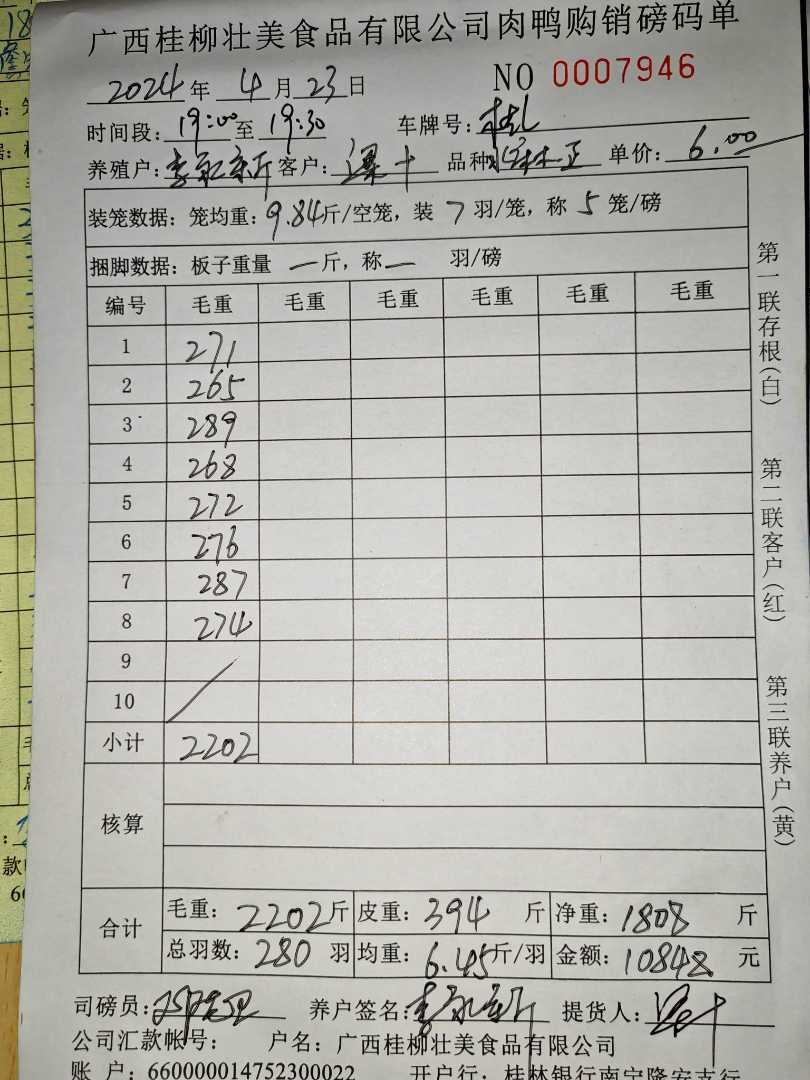 广西桂柳壮美食品有限公司肉鸭购销磅码单
2024年 4月23日 NO 0007946
时间段：19:00至19:30 车牌号：
养殖户： 客户： 品种： 单价：6.00
装笼数据：笼均重：9.84斤/空笼，装7羽/笼，称5笼/磅
捆脚数据：板子重量 一斤，称一 羽/磅
编号 毛重 毛重 毛重 毛重 毛重 毛重
1 271
2 265
3 289
4 268
5 272
6 276
7 287
8 274
9
10
小计 2202
核算
合计 毛重：2202斤 皮重：394斤 净重：1808斤
总羽数：280羽 均重：6.45斤/羽 金额：10848元
司磅员： 养户签名： 提货人：
公司汇款帐号： 户名：广西桂柳壮美食品有限公司
账 户：660000014752300022 开户行：桂林银行南宁隆安支行
第一联存根(白)
第二联客户(红)
第三联养户(黄)